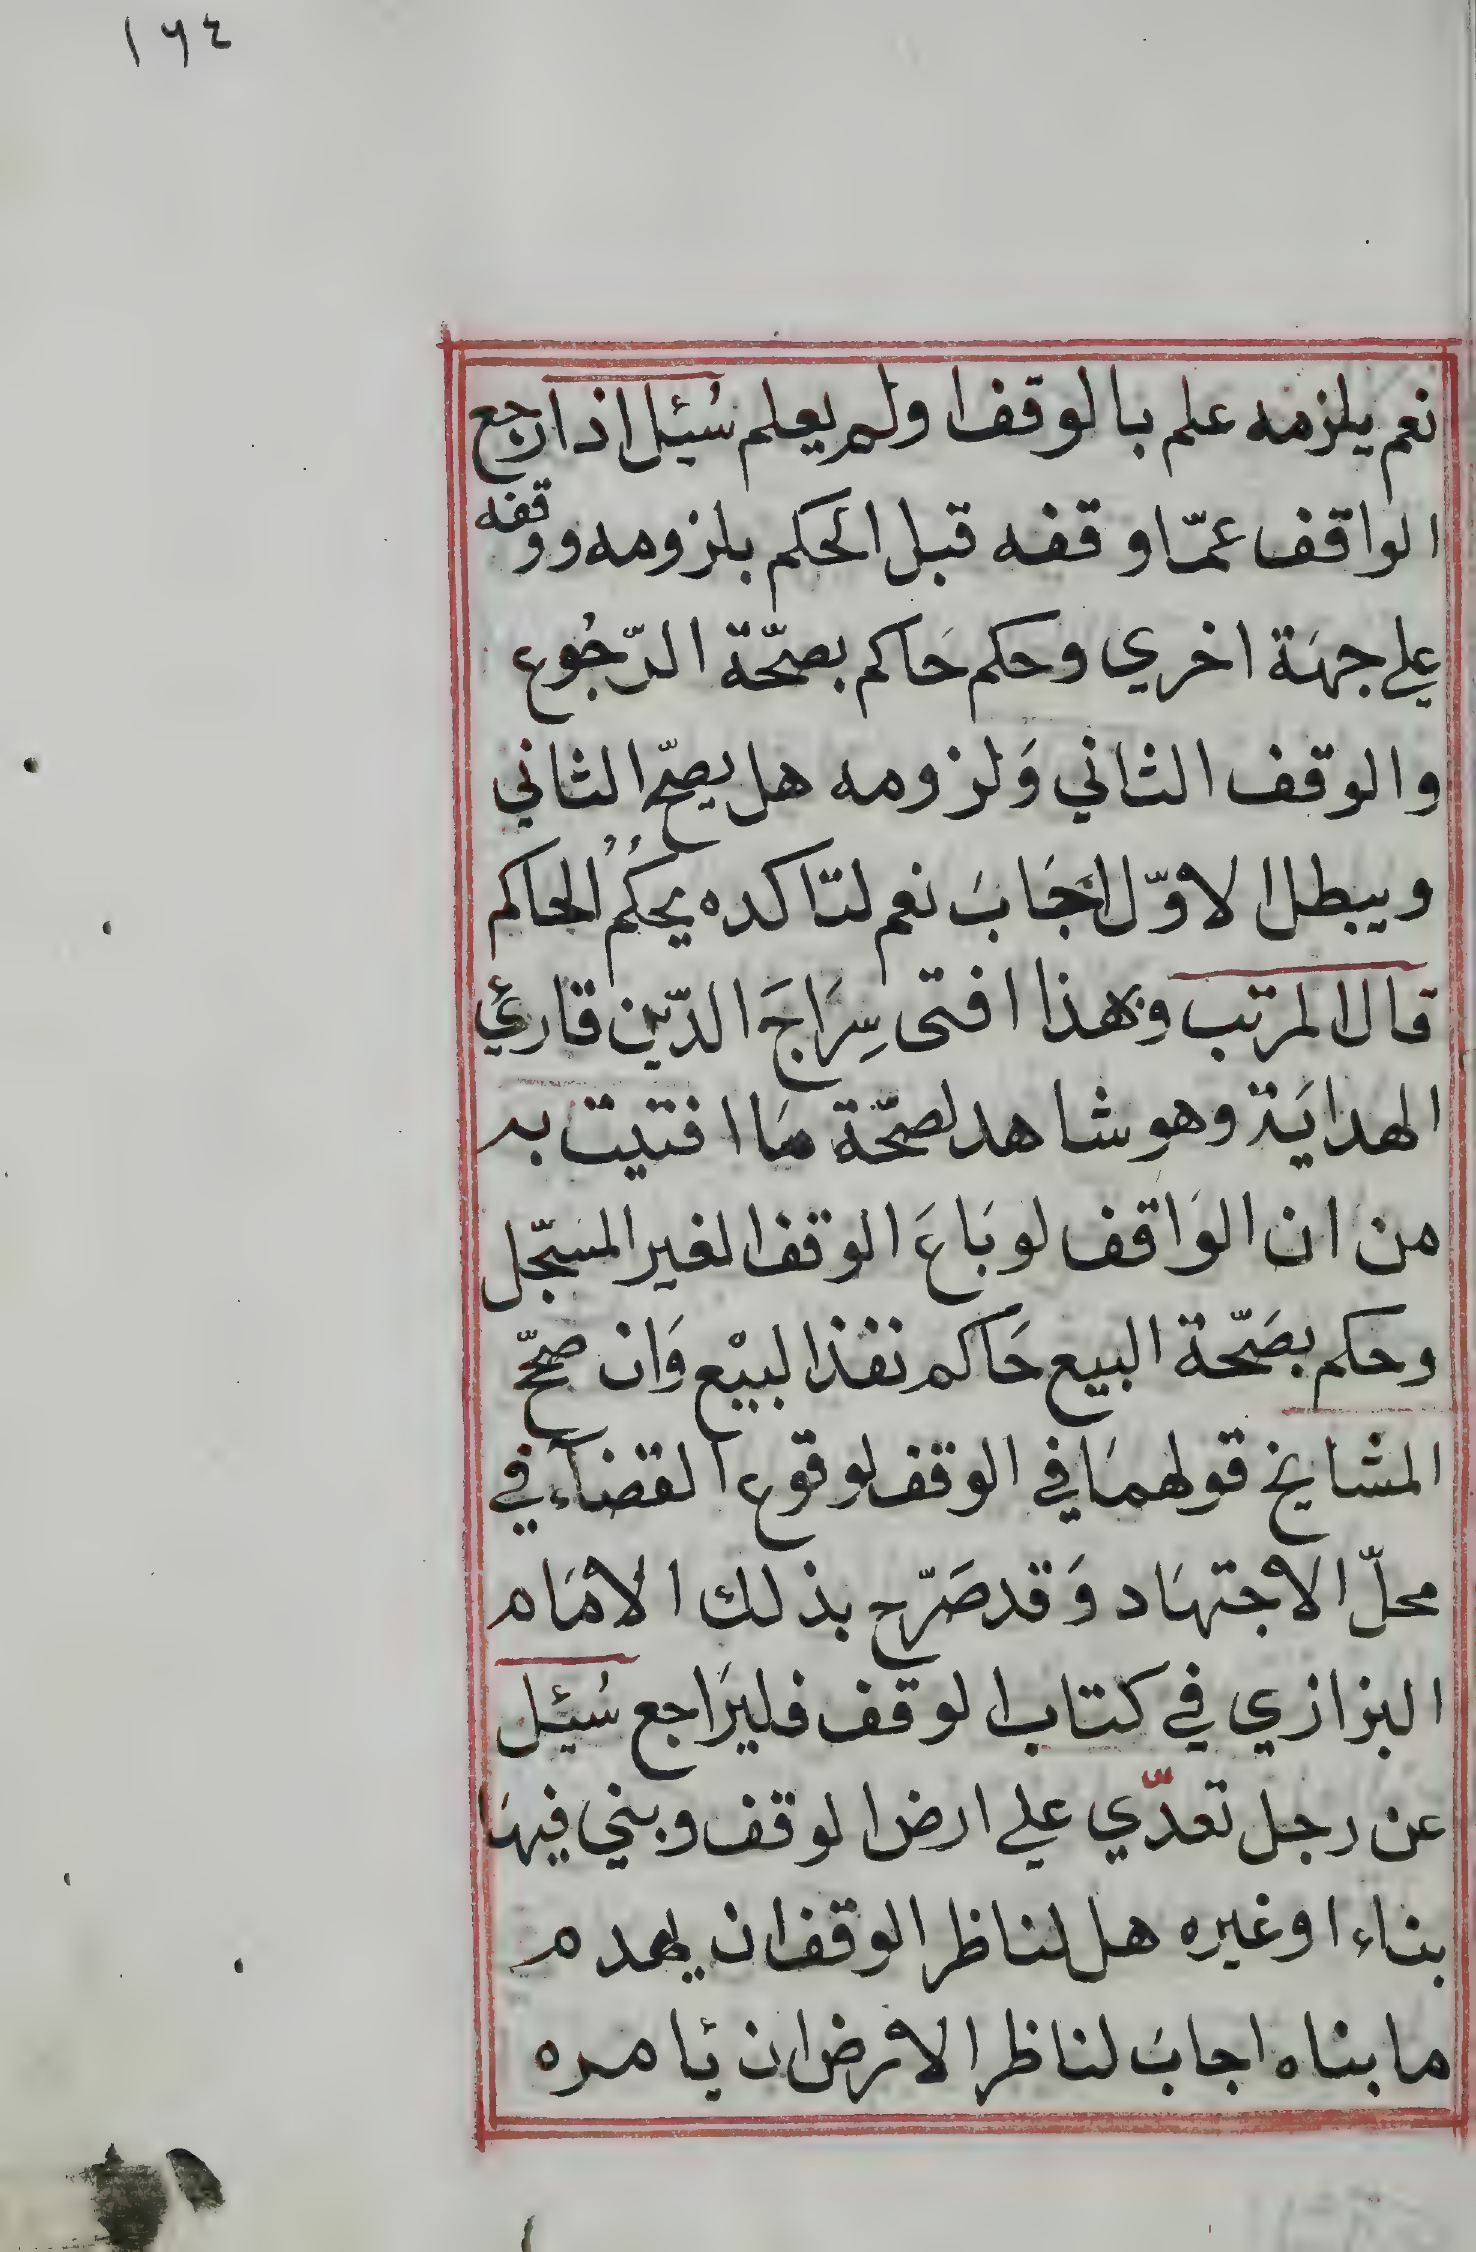 ١٦٤
نعم يلزمه علم بالوقف ا ولم يعلم سُئل اذا رجع
الواقف عمّا وقفه قبل الحكم بلزومه ووقفه
علي جهَة اخري وحكم حَاكم بصحّة الرّجُوع
والوقف الثاني وَلزومه هل يصحّ الثاني
ويبطل الاوّل اجَابَ نعم لتاكده بحكمُ الحاكم
قال المرتب وبهذا افتى سِرَاجَ الدّين قارئي
الهدايَة وهو شاهد لصحّة مَا افتيت به
من ان الوَاقف لو بَاعَ الوقف الغير المسَجّل
وحكم بصَحّة البيع حَاكم نفذ البيْع وَان صحّح
المشايخ قولهمَا في الوقف لوقوع القضآء في
محلّ الاجتهَاد وَقد صَرّح بذلك الامَام
البزازي في كتاب الوقف فليرَاجع سُئل
عن رجل تعدّي علي ارض الوقف وبني فيهَا
بناء اوغيره هل لناظر الوقف ان يهدم
ما بناه اجابَ لناظر الارض ان يامره